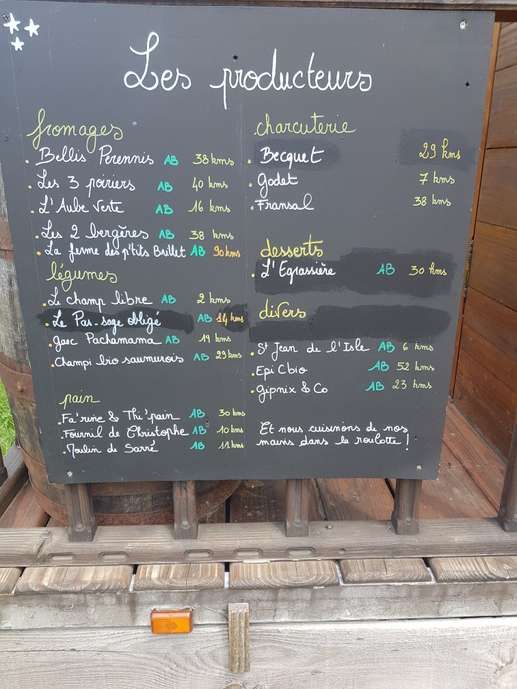 Les producteurs
fromages
. Bellis Perennis AB 38 kms
. Les 3 poiriers AB 40 kms
. L'Aube Verte AB 16 kms
. Les 2 bergères AB 38 kms
. La ferme des p'tits Brillet AB 90 kms
légumes
. Le champ libre AB 2 kms
. Le Pas-sage obligé AB 14 kms
. gaec Pachamama AB 19 kms
. Champi bio saumurois AB 29 kms
pain
. Fa'rine & Thi'pain AB 30 kms
. Fournil de Christophe AB 10 kms
. Moulin de Sarré AB 11 kms
charcuterie
. Becquet 29 kms
. Godet 7 kms
. Fransal 38 kms
desserts
. L'Egrassière AB 30 kms
divers
. St Jean de l'Isle AB 6 kms
. Epi C bio AB 52 kms
. Gipnix & Co AB 23 kms
Et nous cuisinons de nos
mains dans la roulotte !